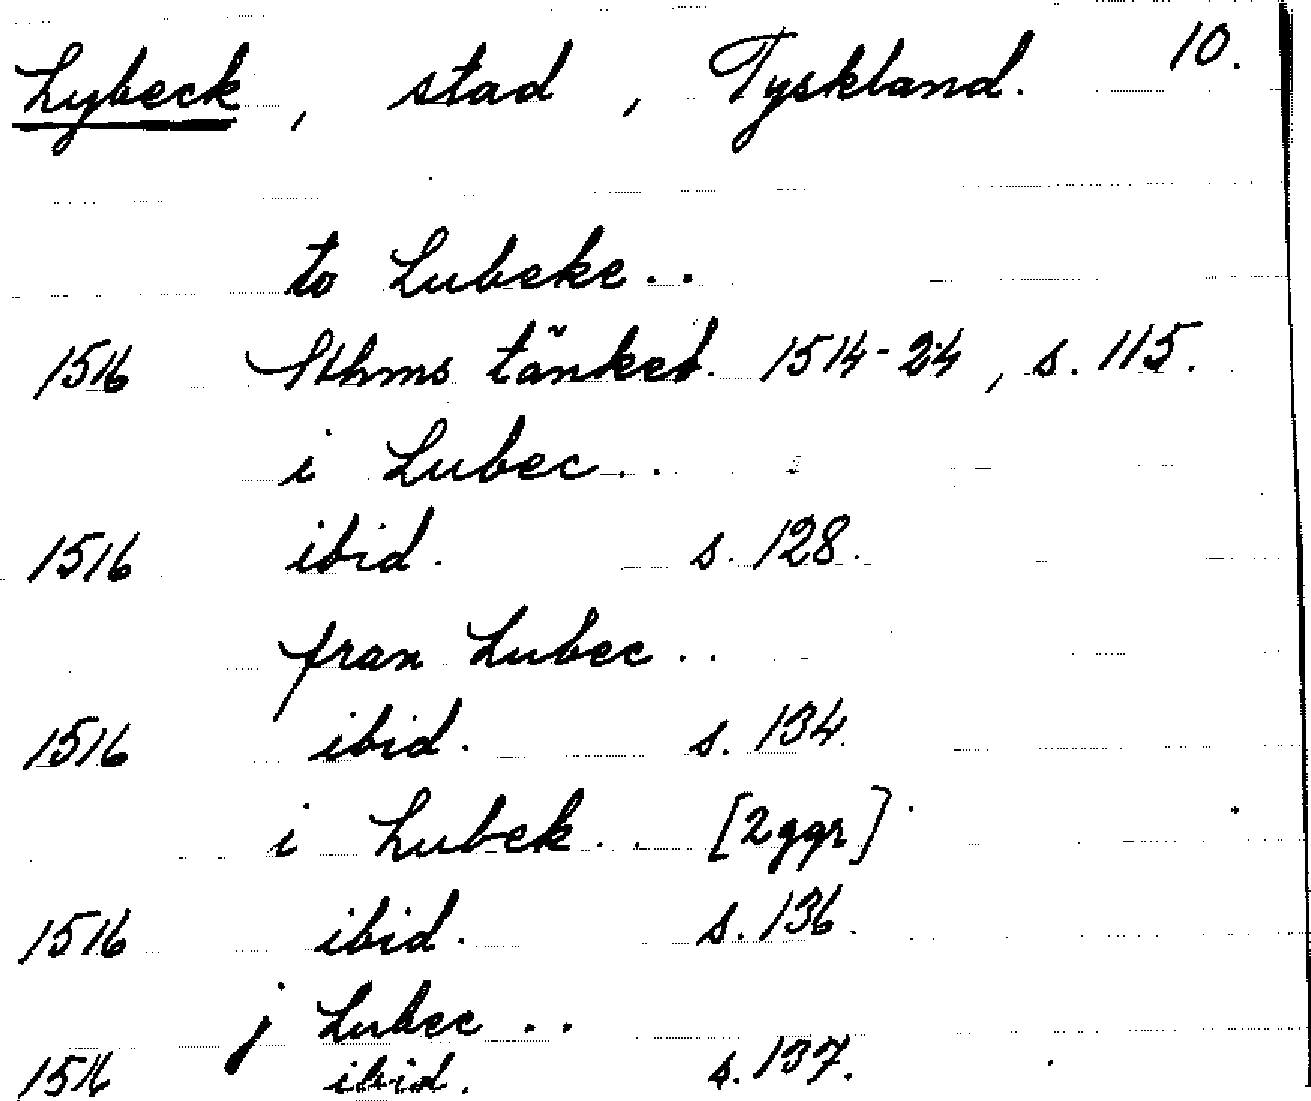 Lybeck, stad, Tyskland. 10.
to Lubeke..
1516 Sthms tänkeb. 1514-24, s. 115.
i Lubec..
1516 ibid. s. 128.
fran Lubec..
1516 ibid. s. 134.
i Lubek.. [2 ggr]
1516 ibid. s. 136.
j Lubec..
1516 ibid. s. 137.